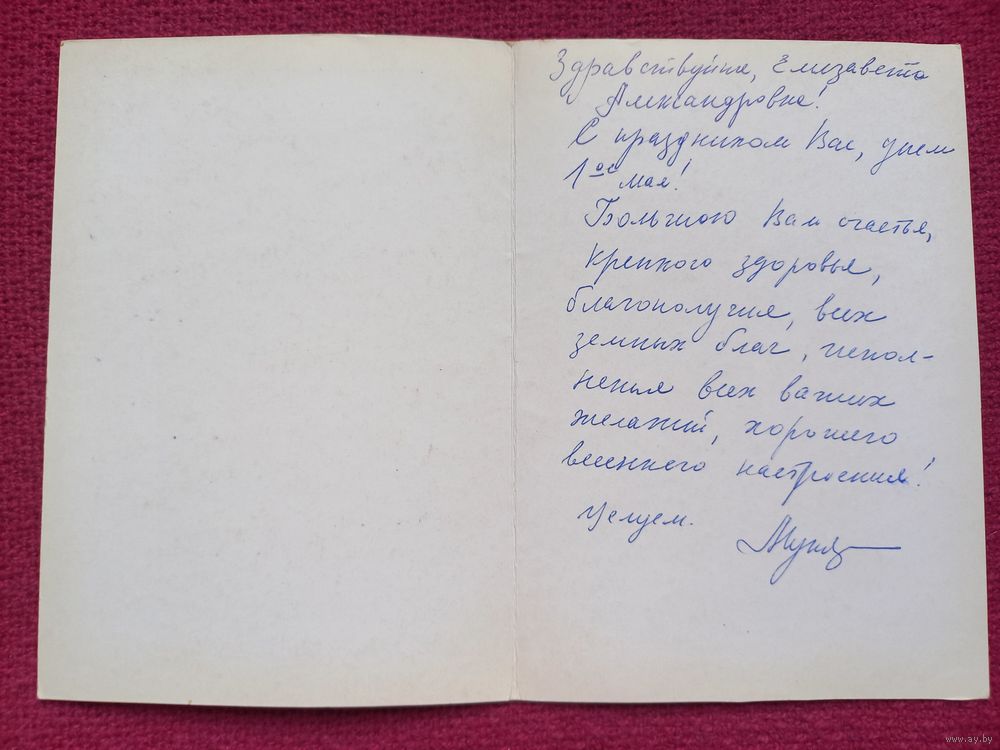 Здравствуйте, Елизавета
Александровна!
С праздником Вас, днем
1ое мая!
Большого Вам счастья,
крепкого здоровья,
благополучия, всех
земных благ, испол-
нения всех ваших
желаний, хорошего
весеннего настроения!
Целуем.
www.ay.by